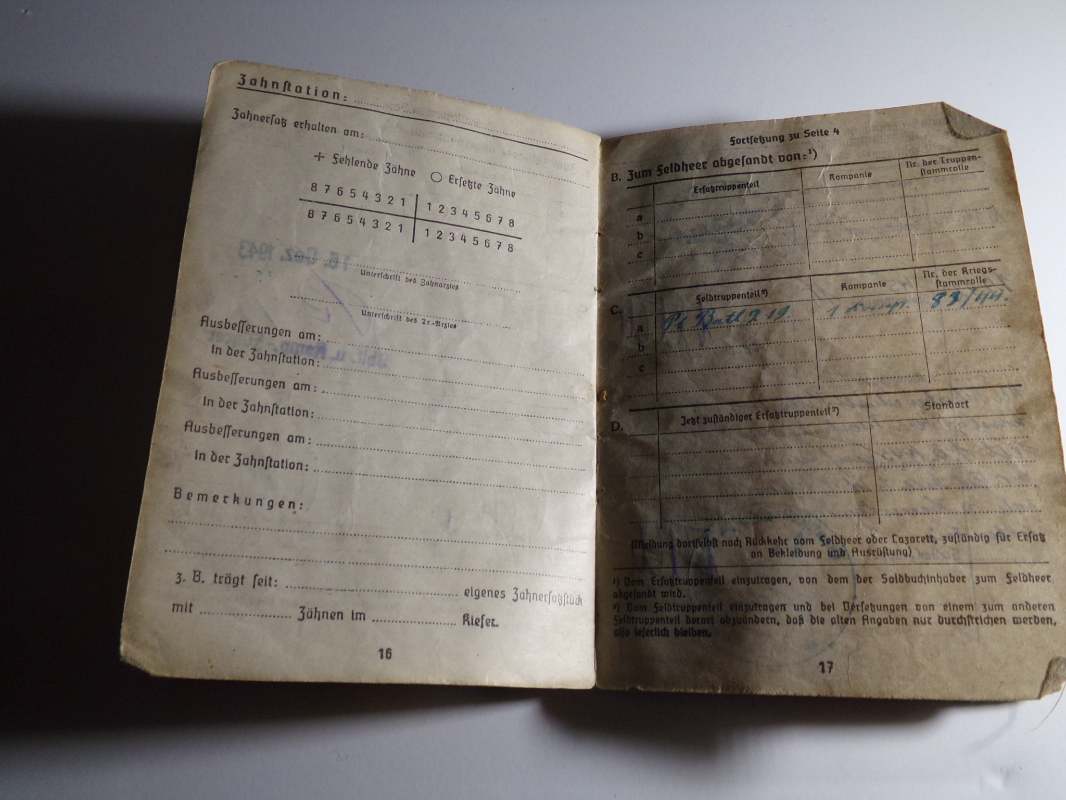 Zahnstation:
Zahnersatz erhalten am:
+ Fehlende Zähne ○ Ersetzte Zähne
8 7 6 5 4 3 2 1 | 1 2 3 4 5 6 7 8
8 7 6 5 4 3 2 1 | 1 2 3 4 5 6 7 8
16. Dez. 1943
Unterschrift des Zahnarztes
Unterschrift des Tr.-Arztes
Ausbesserungen am:
In der Zahnstation:
Ausbesserungen am:
In der Zahnstation:
Ausbesserungen am:
In der Zahnstation:
Bemerkungen:
z. B. trägt seit: eigenes Zahnersatzstück
mit Zähnen im Kiefer.
16
Fortsetzung zu Seite 4
B. Zum Feldheer abgesandt von:¹)
Ersatztruppenteil Kompanie Nr. der Truppen-
stammrolle
a
b
c
C. Feldtruppenteil²) Kompanie Nr. der Kriegs-
stammrolle
a Pi Batl 219 1 Komp. 83/44.
b
c
D. Jetzt zuständiger Ersatztruppenteil²) Standort
(Meldung dortselbst nach Rückkehr vom Feldheer oder Lazarett, zuständig für Ersatz
an Bekleidung und Ausrüstung)
¹) Vom Ersatztruppenteil einzutragen, von dem der Soldbuchinhaber zum Feldheer
abgesandt wird.
²) Vom Feldtruppenteil einzutragen und bei Versetzungen von einem zum anderen
Feldtruppenteil derart abzuändern, daß die alten Angaben nur durchstrichen werden,
also leserlich bleiben.
17